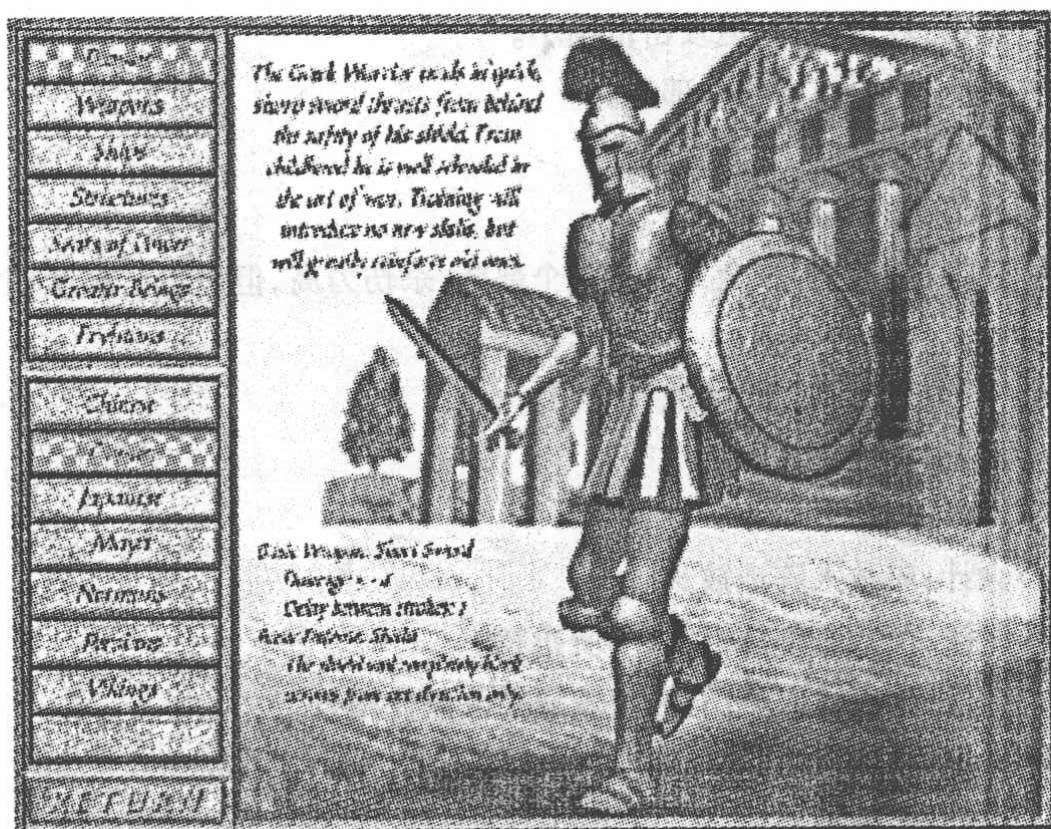 Weapons
Ships
Structures
Seats of Power
Greater Beings
Chinese
Japanese
Maya
Normans
Persians
Vikings
RETURN
The Greek Warrior in quick,
sharp sword thrusts from behind
the safety of his shield. From
childhood he is well schooled in
the art of war. Training will
introduce no new skills, but
will greatly reinforce old ones.
Basic Weapon: Short Sword
Damage
Delay between strokes:
Basic Defense: Shield
The shield will completely block
arrows from one direction only.